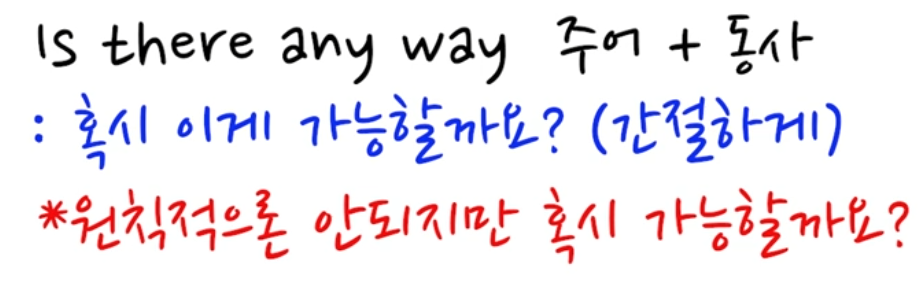 Is there any way 주어 + 동사
: 혹시 이게 가능할까요? (간절하게)
*원칙적으론 안되지만 혹시 가능할까요?